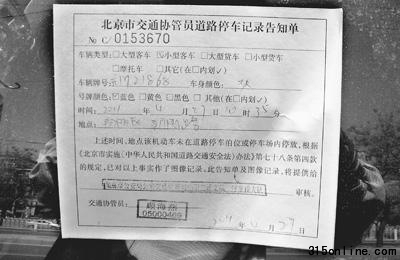 北京市交通协管员道路停车记录告知单
No C/0153670
车辆类型:□大型客车 ☑小型客车 □大型货车 □小型货车
□摩托车 □其它(在□内划√)
车辆牌号: 车身颜色:
号牌颜色:☑蓝色 □黄色 □黑色 □其他(在□内划√)
时间: 2011 年 4 月 27 日 10 时 35 分
地点:
上述时间、地点该机动车未在道路停车泊位或停车场内停放,根据
《北京市实施〈中华人民共和国道路交通安全法〉办法》第七十八条第四款
的规定,已对以上事实作了图像记录。此告知单及图像记录,将提供给
审核。
交通协管员:
顾海燕
05000469
2011 年 4 月 27 日
315online.com